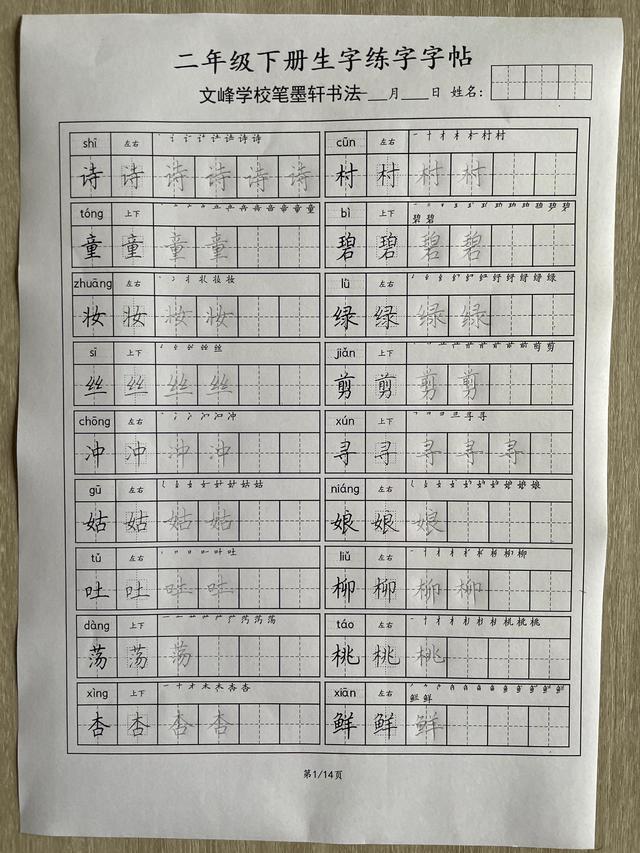 二年级下册生字练字字帖
文峰学校笔墨轩书法 ___月___日 姓名:
shī 左右 cūn 左右
诗 诗 诗 诗 诗 诗 村 村 村 村
tóng 上下 bì 上下
童 童 童 童 碧 碧 碧 碧
zhuāng 左右 lǜ 左右
妆 妆 妆 妆 绿 绿 绿 绿
sī 上下 jiǎn 上下
丝 丝 丝 丝 剪 剪 剪 剪
chōng 左右 xún 上下
冲 冲 冲 冲 寻 寻 寻 寻 寻
gū 左右 niáng 左右
姑 姑 姑 姑 娘 娘 娘
tǔ 左右 liǔ 左右
吐 吐 吐 吐 柳 柳 柳 柳
dàng 上下 táo 左右
荡 荡 荡 桃 桃 桃
xìng 上下 xiān 左右
杏 杏 杏 杏 鲜 鲜 鲜
第1/14页